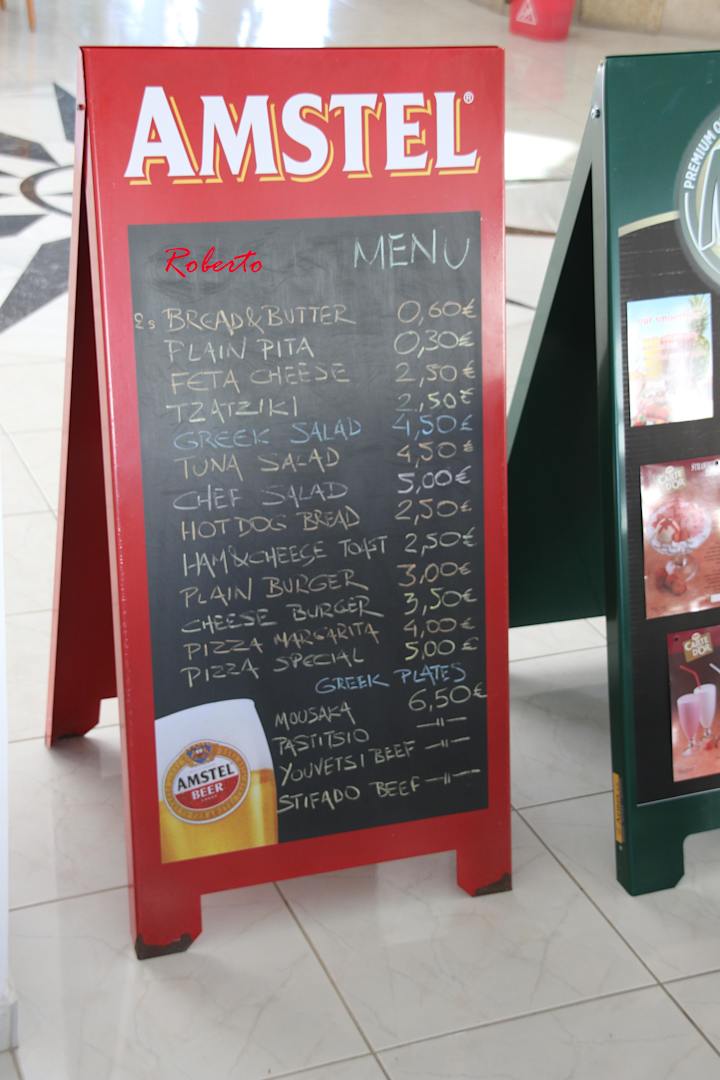 AMSTEL®
Roberto MENU
2s BREAD&BUTTER 0,60€
PLAIN PITA 0,30€
FETA CHEESE 2,50€
TZATZIKI 2,50€
GREEK SALAD 4,50€
TUNA SALAD 4,50€
CHEF SALAD 5,00€
HOTDOG BREAD 2,50€
HAM&CHEESE TOAST 2,50€
PLAIN BURGER 3,00€
CHEESE BURGER 3,50€
PIZZA MARGARITA 4,00€
PIZZA SPECIAL 5,00€
GREEK PLATES
MOUSAKA 6,50€
PASTITSIO —||—
YOUVETSI BEEF —||—
STIFADO BEEF —||—
AMSTEL
BEER
PREMIUM
CARTE
D'OR
CARTE
D'OR